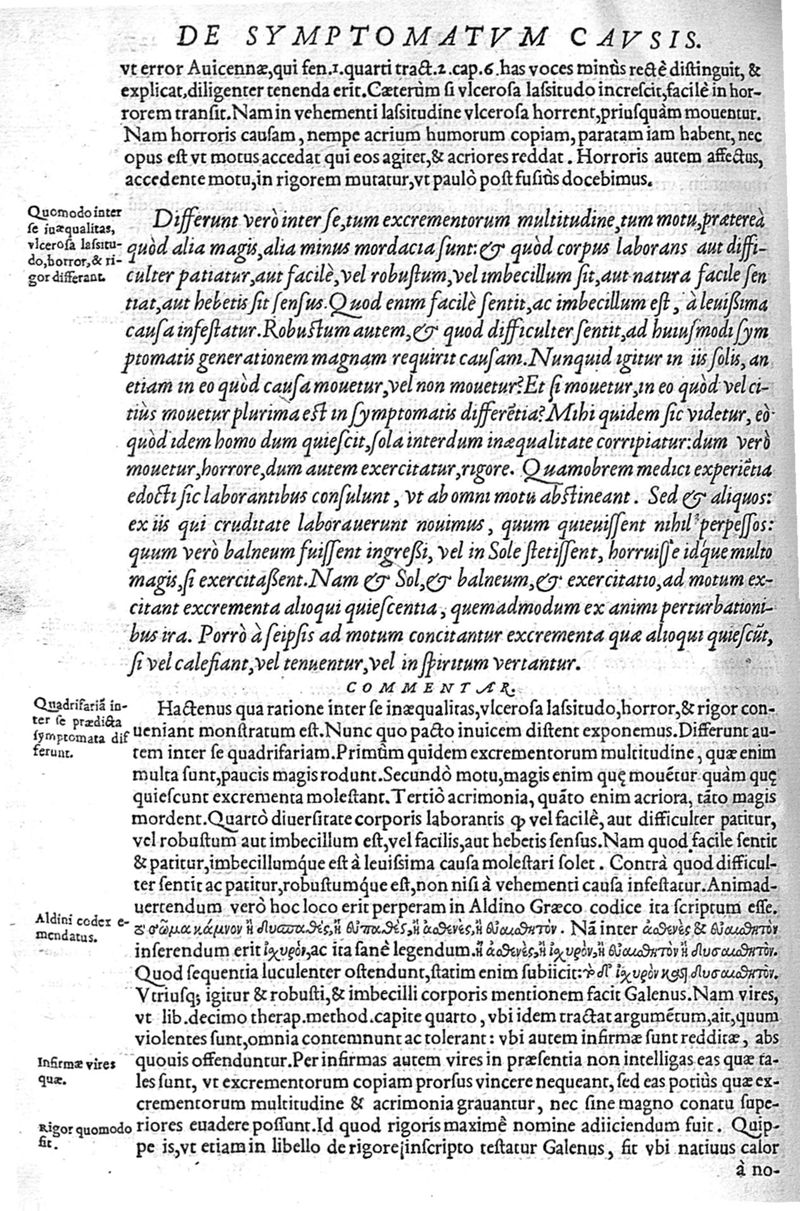 DE SYMPTOMATVM CAVSIS.
vt error Auicennæ, qui fen.1.quarti tract.2.cap.6.has voces minùs rectè distinguit, &
explicat, diligenter tenenda erit. Cæterùm si vlcerosa lassitudo increscit, facilè in hor-
rorem transit. Nam in vehementi lassitudine vlcerosa horrent, priusquàm mouentur.
Nam horroris causam, nempe acrium humorum copiam, paratam iam habent, nec
opus est vt motus accedat qui eos agitet, & acriores reddat. Horroris autem affectus,
accedente motu, in rigorem mutatur, vt paulò post fusiùs docebimus.
Quomodo inter
se inæqualitas,
vlcerosa lassitu-
do, horror, & ri-
gor differant.
Differunt verò inter se, tum excrementorum multitudine, tum motu, prætereà
quòd alia magis, alia minus mordacia sunt: & quòd corpus laborans aut diffi-
culter patiatur, aut facilè, vel robustum, vel imbecillum sit, aut natura facile sen
tiat, aut hebetis sit sensus. Quod enim facilè sentit, ac imbecillum est, à leuißima
causa infestatur. Robustum autem, & quod difficulter sentit, ad huiusmodi sym
ptomatis generationem magnam requirit causam. Nunquid igitur in iis solis, an
etiam in eo quòd causa mouetur, vel non mouetur? Et si mouetur, in eo quòd vel ci-
tiùs mouetur plurima est in symptomatis differẽtia? Mihi quidem sic videtur, eò
quòd idem homo dum quiescit, sola interdum inæqualitate corripiatur: dum verò
mouetur, horrore, dum autem exercitatur, rigore. Quamobrem medici experiẽtia
edocti sic laborantibus consulunt, vt ab omni motu abstineant. Sed & aliquos
ex iis qui cruditate laborauerunt nouimus, quum quieuissent nihil perpessos:
quum verò balneum fuissent ingreßi, vel in Sole stetissent, horruisse idq́ue multo
magis, si exercitaßent. Nam & Sol, & balneum, & exercitatio, ad motum ex-
citant excrementa alioqui quiescentia, quemadmodum ex animi perturbationi-
bus ira. Porrò à seipsis ad motum concitantur excrementa quæ alioqui quiescũt,
si vel calefiant, vel tenuentur, vel in spiritum vertantur.
COMMENTAR.
Quadrifariã in-
ter se prædicta
symptomata dif
ferunt.
Hactenus qua ratione inter se inæqualitas, vlcerosa lassitudo, horror, & rigor con-
ueniant monstratum est. Nunc quo pacto inuicem distent exponemus. Differunt au-
tem inter se quadrifariam. Primùm quidem excrementorum multitudine, quæ enim
multa sunt, paucis magis rodunt. Secundò motu, magis enim quę mouẽtur quàm quę
quiescunt excrementa molestant. Tertiò acrimonia, quãto enim acriora, tãto magis
mordent. Quartò diuersitate corporis laborantis ꝙ vel facilè, aut difficulter patitur,
vel robustum aut imbecillum est, vel facilis, aut hebetis sensus. Nam quod facile sentit
& patitur, imbecillumq́ue est à leuissima causa molestari solet. Contrà quod difficul-
ter sentit ac patitur, robustumq́ue est, non nisi à vehementi causa infestatur. Animad-
uertendum verò hoc loco erit perperam in Aldino Græco codice ita scriptum esse.
Aldini codex e-
mendatus.
τὸ σῶμα κάμνον ἢ δυσπαθὲς, ἢ εὐπαθὲς, ἢ ἀσθενὲς, ἢ εὐαισθητόν. Nã inter ἀσθενὲς & εὐαισθητόν
inserendum erit ἰχυρὸν, ac ita sanè legendum. ἢ ἀσθενὲς, ἢ ἰχυρὸν, ἢ εὐαισθητὸν ἢ δυσαισθητόν.
Quod sequentia luculenter ostendunt, statim enim subiicit: τὸ δ' ἰχυρὸν καὶ δυσαισθητὸν.
Vtriusq; igitur & robusti, & imbecilli corporis mentionem facit Galenus. Nam vires,
vt lib. decimo therap. method. capite quarto, vbi idem tractat argumẽtum, ait, quum
violentes sunt, omnia contemnunt ac tolerant: vbi autem infirmæ sunt redditæ, abs
Infirmæ vires
quæ.
quouis offenduntur. Per infirmas autem vires in præsentia non intelligas eas quæ ta-
les sunt, vt excrementorum copiam prorsus vincere nequeant, sed eas potiùs quæ ex-
crementorum multitudine & acrimonia grauantur, nec sine magno conatu supe-
Rigor quomodo
fit.
riores euadere possunt. Id quod rigoris maximè nomine adiiciendum fuit. Quip-
pe is, vt etiam in libello de rigore inscripto testatur Galenus, fit vbi natiuus calor
à no-